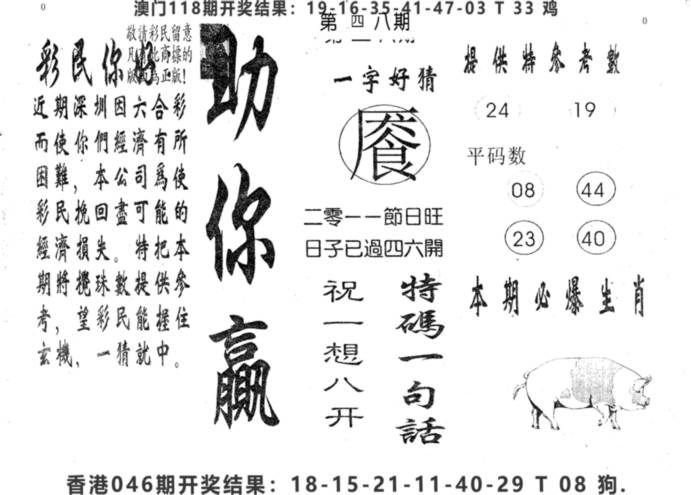 澳门118期开奖结果：19-16-35-41-47-03 T 33 鸡
第四八期
敬請彩民留意
彩民你好
近期深圳因六合彩
而使你們經濟有所
困難，本公司爲使
彩民挽回盡可能的
經濟損失。特把本
期將攪珠數提供參
考，望彩民能握住
玄機，一猜就中。
助你贏
一字好猜
二零一一節日旺
日子已過四六開
特碼一句話
祝一想八开
提供特參考數
24 19
平码数
08 44
23 40
本期必爆生肖
香港046期开奖结果：18-15-21-11-40-29 T 08 狗.